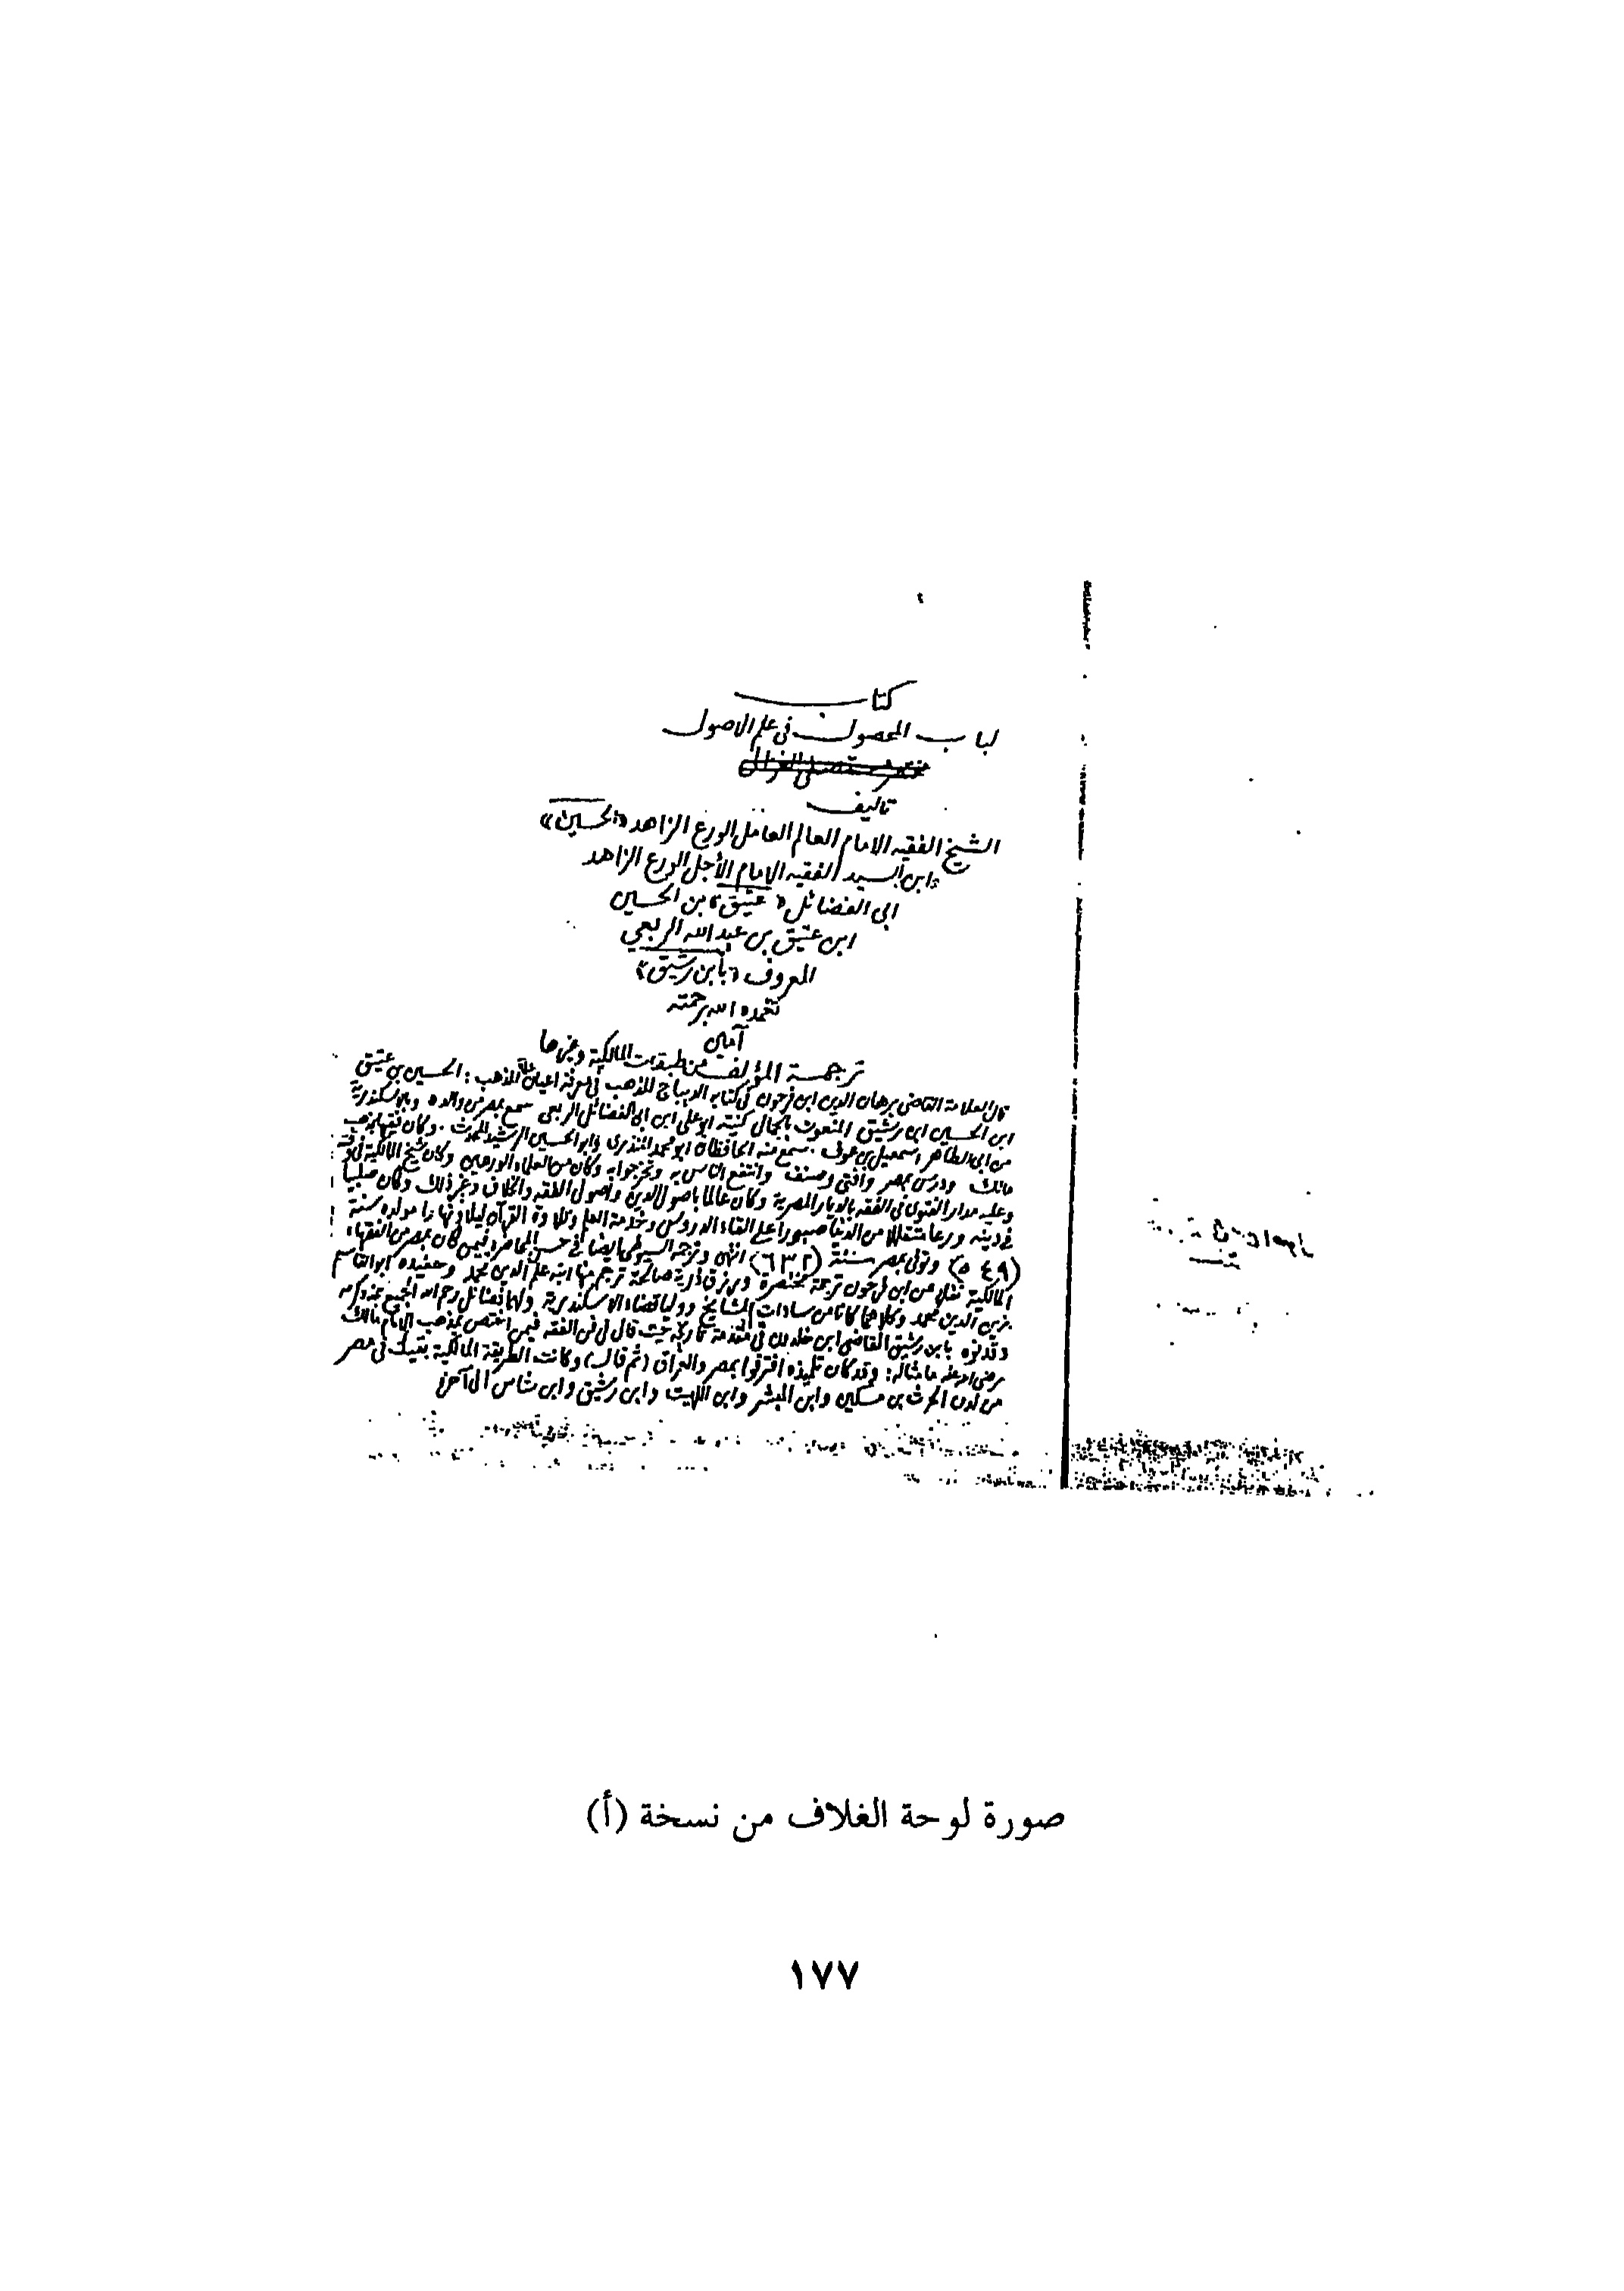 كتاب
لباب المحصول في علم الاصول
مختصر مستصفى الغزالي
تاليف
الشيخ الفقيه الامام العالم العامل الورع الزاهد «الحسين»
«ابن السيد الفقيه الامام الأجل الورع الزاهد
ابى الفضائل «عتيق» بن الحسين
ابن عتيق بن عبد الله الربعي
المعروف «بابن رشيق»
تغمده الله برحمته
آمين
ترجمة المؤلف من طبقات المالكية وغيرها
قال العلامة القاضى برهان الدين ابن فرحون فى كتابه الديباج المذهب فى معرفة اعيان علماء المذهب: الحسين بن عتيق
ابن الحسين ابن رشيق المنعوت بالجمال كنيته ابو على ابن ابى الفضائل الربعى سمع بمصر من والده وبالاسكندرية
من ابى الطاهر اسمعيل بن عوف. سمع منه الحافظان ابو محمد المنذرى وابو الحسين الرشيد المحدث. وكان فقيها بمذهب
مالك ودرس بمصر وافتى وصنف وانتفع الناس به وتخرجوا به وكان من العلماء الورعين وكان شيخ المالكية فى وقته
وعليه مدار الفتوى فى الفقه بالديار المصرية وكان عالما باصول الدين واصول الفقه والخلاف وغير ذلك وكان صليبا
فى دينه ورعا متقللا من الدنيا صبورا على القاء الدروس وخدمة العلم وتلاوة القرآن ليلا ونهارا مولده سنة
(٥٤٩) وتوفى بمصر سنة (٦٣٢) انتهى وترجمه السيوطى ايضا فى حسن المحاضرة فيمن كان بمصر من الفقهاء
المالكية نقلا عن ابن فرحون ترجمة مختصرة ورزق ذرية صالحة ترجم منها ابنه علم الدين محمد وحفيده ابو القاسم
زين الدين محمد وكلاهما كانا من سادات المشايخ ووليا قضاء الاسكندرية ولهما فضائل رحم الله الجميع بمنه وكرمه
وقد نوه بابن رشيق القاضى ابن خلدون فى مقدمة تاريخه حيث قال فى فن الفقه فيمن اختص بمذهب الامام مالك
رضى الله عنه ما مثاله: وقد كان تلميذه افترقوا بمصر والعراق (ثم قال) وكانت الطريقة المالكية بقيت فى مصر
من لدن الحرث بن مسكين وابن المبشر وابن اللهيت وابن رشيق وابن شاس الى آخره
صورة لوحة الغلاف من نسخة (أ)
١٧٧